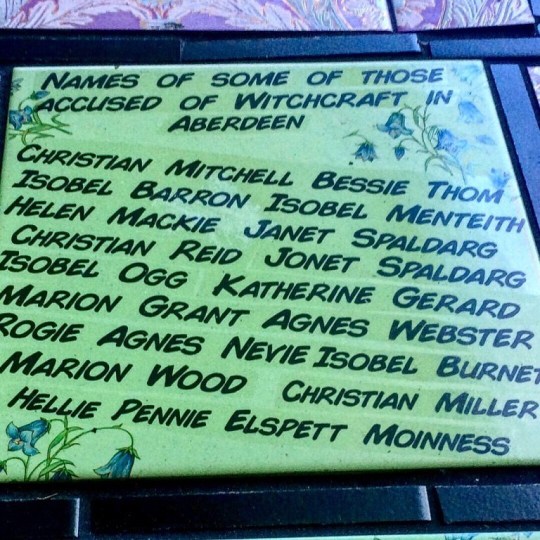 NAMES OF SOME OF THOSE
ACCUSED OF WITCHCRAFT IN
ABERDEEN
CHRISTIAN MITCHELL BESSIE THOM
ISOBEL BARRON ISOBEL MENTEITH
HELEN MACKIE JANET SPALDARG
CHRISTIAN REID JONET SPALDARG
ISOBEL OGG KATHERINE GERARD
MARION GRANT AGNES WEBSTER
ROGIE AGNES NEVIE ISOBEL BURNET
MARION WOOD CHRISTIAN MILLER
HELLIE PENNIE ELSPETT MOINNESS